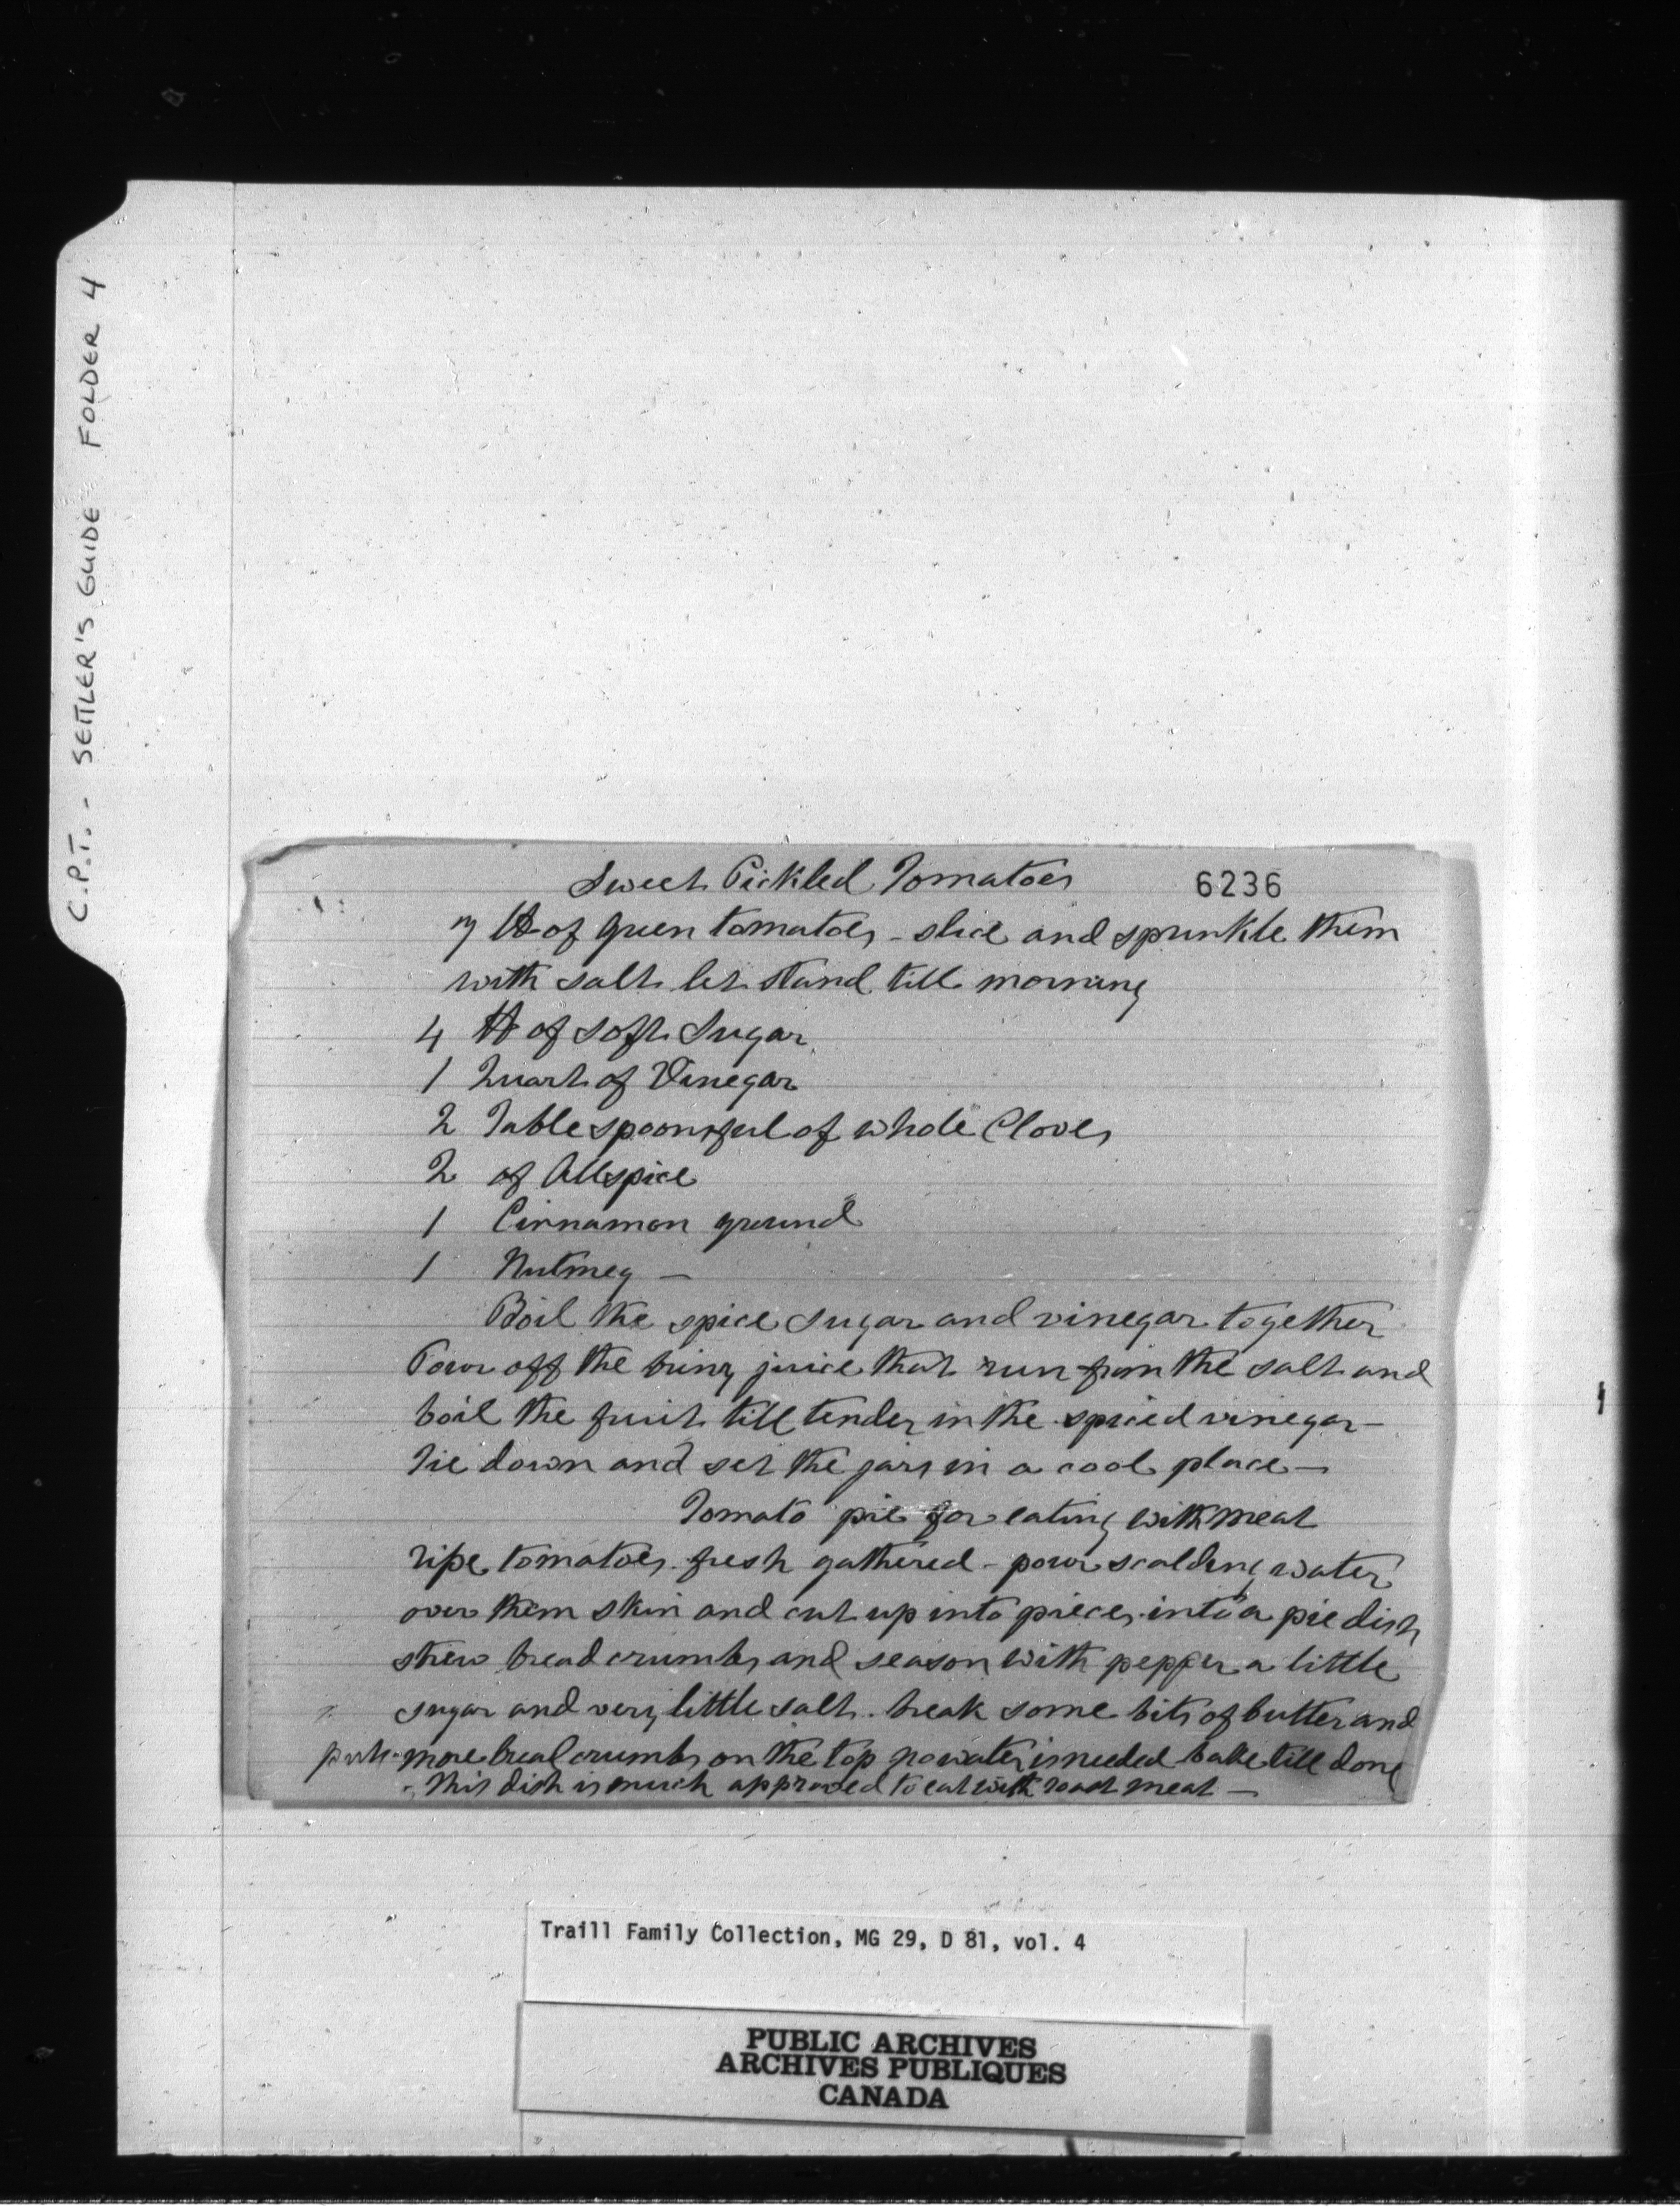 C.P.T. - SETTLER'S GUIDE FOLDER 4
Sweet Pickled Tomatoes 6236
7 lb of green tomatoes - slice and sprinkle them
with salt let stand till morning
4 lb of soft Sugar
1 Quart of Vinegar
2 Table spoonsful of whole Cloves
2 of Allspice
1 Cinnamon ground
1 Nutmeg —
Boil the spice sugar and vinegar together
Pour off the briny juice that run from the salt and
boil the fruit till tender in the spiced vinegar —
Tie down and set the jars in a cool place —
Tomato pie for eating with meat
ripe tomatoes fresh gathered - pour scalding water
over them skin and cut up into pieces into a pie dish
strew bread crumbs and season with pepper a little
sugar and very little salt. break some bits of butter and
put more bread crumbs on the top no water is needed bake till done
- This dish is much approved to eat with roast meat —
Traill Family Collection, MG 29, D 81, vol. 4
PUBLIC ARCHIVES
ARCHIVES PUBLIQUES
CANADA